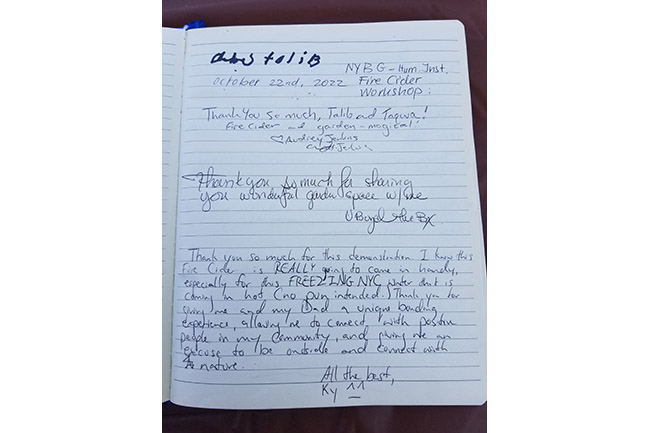 talib
October 22nd, 2022
NYBG - Hum. Inst.
Fire Cider
Workshop
Thank You so much, Talib and Taqwa!
Fire Cider and garden - magical!
♡ Audrey Jenkins
Thank you so much for sharing
you wonderful garden space w/me
Thank you so much for this demonstration. I know this
Fire Cider is REALLY going to come in handy,
especially for this FREEZING NYC water that is
coming in hot (no pun intended.) Thank you for
giving me and my Dad a unique bonding
experience, allowing me to connect with positive
people in my community, and giving me an
excuse to be outside and connect with
nature.
All the best,
Ky ^^